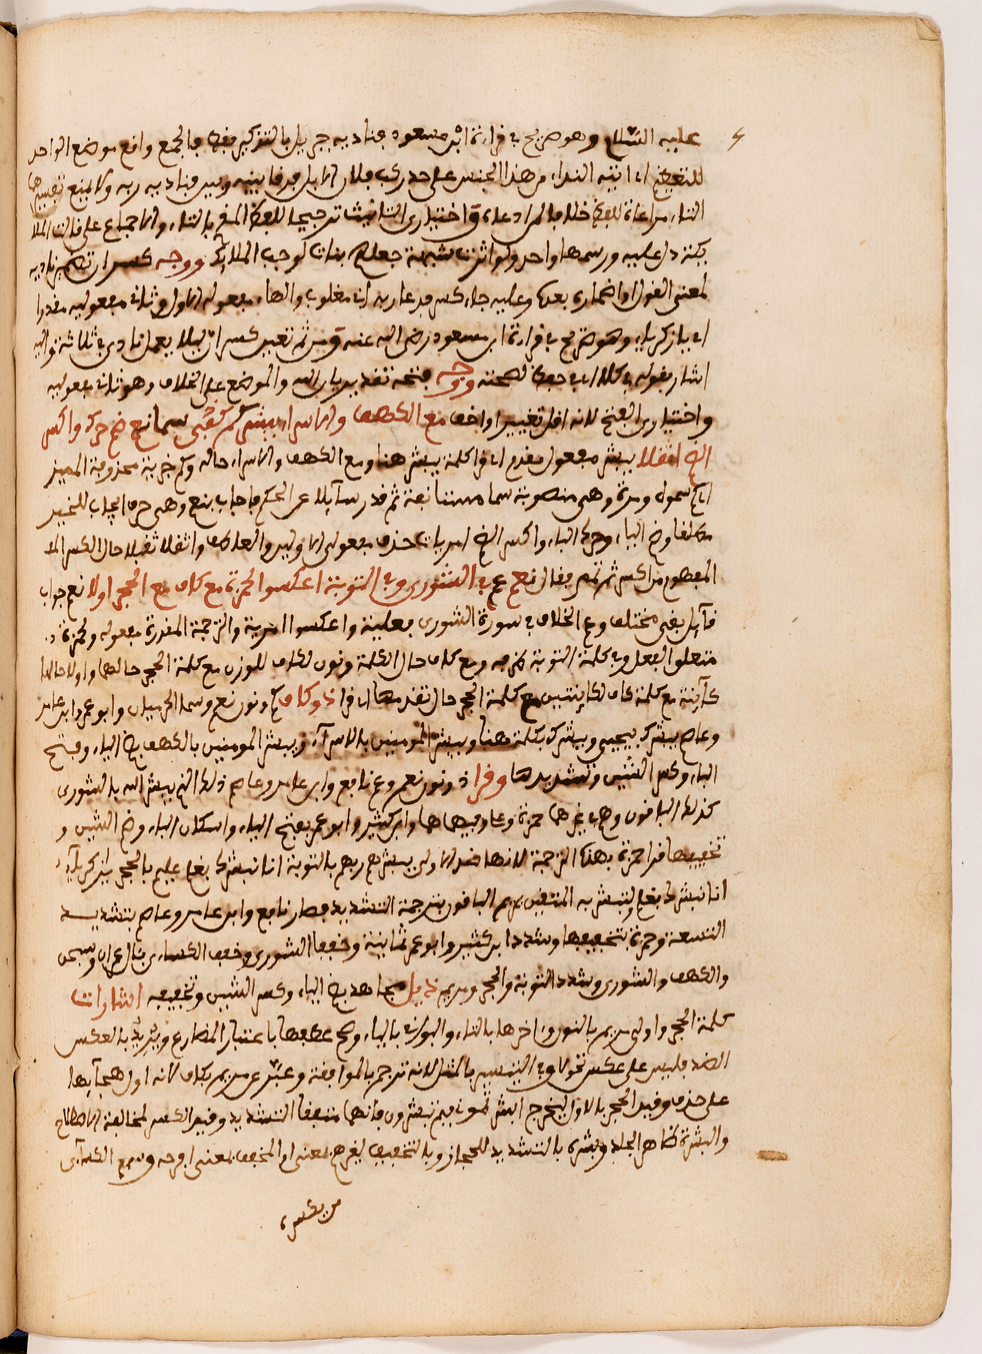 عليه السلام وهو صريح في قراءة ابن مسعود فناديه جبريل بالتذكير فيها فالجمع واقع موضع الواحد
للتعظيم اي اتيه النداء من هذا الجنس على حد ركب فلان الابل فرقا بينه وبين فناديه ربه ولا يمنع تفسيرها
التاء مراعاة للفظ خلافا لمرادعاه واختياري التانيث ترجيحا للفظ المقر بالتاء والاجماع على قالت الملا
ئكة دل عليه ورسمها واحد وتواترت شبهة جعلهم بنات توجب الملائكة ووجه كسر ان تضمين ناديه
لمعنى القول او اضماره بعده وعليه جاء كسر فدعا ربه اني مغلوب والهاء مفعوله الاول وثاني مفعوليه مقدرا
اي يا زكرياء وهو صريح في قراءة ابن مسعود رضي الله عنه ومن ثم تعين كسر ان ليلا يعمل نادي في ثلاثة واليه
اشار بقوله كلا اي حفظ لصحته ووجه فتحه تقدير بان الله والموضع على الخلاف وهو ثاني مفعوليه
واختياري الفتح لانه اقل تغييرا واخف مع الكهف والاسراء يبشر كم سما نعم ضم حرك واكسر
الضم اثقلا يبشر مفعول مقدم اي اقرا كلمة يبشر هنا ومع الكهف والاسراء حاله وكم خبرية محذوفة المميز
اي كم سموله ومرة وهي منصوبة سما مستانفة ثم قدر سايلا عن الحكم فاجاب بنعم وهي حرف ايجاب للخبر
مطلقا وضم الياء وحرك الباء واكسر الضم امريات حذف مفعولي الاولين والعاطف واثقلا ثقيلا حال الكسر الملا
المقصور من اكسر ثم تمم فقال نعم عم في الشورى وفي التوبة اعكسوا لحمزة مع كاف مع الحجر اولا نعم جواب
قايل بقي مختلف وعم الخلاف في سورة الشورى فعلية واعكسوا امرية والترجمة المقدرة مفعوله ولحمزة
متعلق الفعل وفي كلمة التوبة ظرفه ومع كاف حال الكلمة ونون لكاف للوزن مع كلمة الحجر حالها واولا حالها
كاينة مع كلمة كاف لكاينتين مع كلمة الحجر حال تقدمها اي قرا ذو كاف كم ونون نعم وسما الحرميان وابو عمر وابن عامر
وعاصم يبشرك بيحيى ويبشرك بكلمة هنا ويبشر المومنين بالاسراء ويبشر المومنين بالكهف بضم الياء وفتح
الباء وكسر الشين وتشديدها وقرا ذو نون نعم وعم نافع وابن عامر وعاصم ذلك الذي يبشر الله بالشورى
كذلك الباقون وهم في غيرها حمزة وعلي وفيها هما وابن كثير وابو عمر بفتح الياء واسكان الباء وضم الشين و
تخفيفها قرا حمزة بهذه الترجمة لانها ضد الاولين يبشرهم ربهم بالتوبة انا نبشرك بغلام عليم بالحجر يا زكرياء
انا نبشرك بغلام ولتبشر به المتقين بمريم الباقون بترجمة التشديد فصار نافع وابن عامر وعاصم بتشديد
التسعة وحمزة بتخفيفها وشدد ابن كثير وابو عمر ثمانية وخففا الشورى وخفف الكساءي بال عمران وسبحن
والكهف والشورى وشدد التوبة والحجر ومريم ذيل مجاهد بضم الياء وكسر الشين وتخفيفه اشارات
كلمة الحجر واولي مريم بالنون واخرها بالتاء والبواقي بالياء وصح عطفها باعتبار المضارع ويريد بالعكس
الضد فليس على عكس تحولا وفي التيسير بالمثل لانه ترجم بالموافقة وعبر عن مريم بكاف لانه اول هجايها
على حذف وقيد الحجر بالاول ليخرج ابشرتموني فبم تبشرون فانهما متفقا التشديد وقيد الكسر لمخالفة الاصطلاح
والبشرة ظاهر الجلد وبشره بالتشديد للحجاز وبالتخفيف لغيرهم بمعنى او المخفف بمعنى افرحه وسمع الكساءي
من بعض